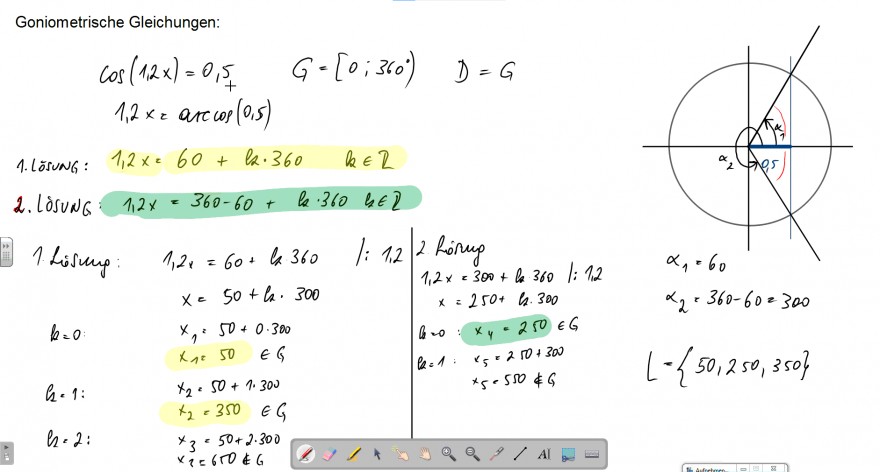 Goniometrische Gleichungen:
cos(1,2x) = 0,5 G = [0 ; 360°) D = G
1,2x = arccos(0,5)
1. LÖSUNG: 1,2x = 60 + k·360 k ∈ ℤ
2. LÖSUNG: 1,2x = 360-60 + k·360 k ∈ ℤ
1. Lösung: 1,2x = 60 + k 360 /: 1,2
x = 50 + k· 300
k=0: x₁ = 50 + 0·300
x₁ = 50 ∈ G
k=1: x₂ = 50 + 1·300
x₂ = 350 ∈ G
k=2: x₃ = 50+2·300
x₃ = 650 ∉ G
2 Lösung
1,2x = 300 + k 360 /: 1,2
x = 250 + k·300
k=0: x₄ = 250 ∈ G
k=1: x₅ = 250+300
x₅ = 550 ∉ G
α₁
α₂
0,5
α₁ = 60
α₂ = 360-60 = 300
L = {50, 250, 350}
AI
Aufnehmen...